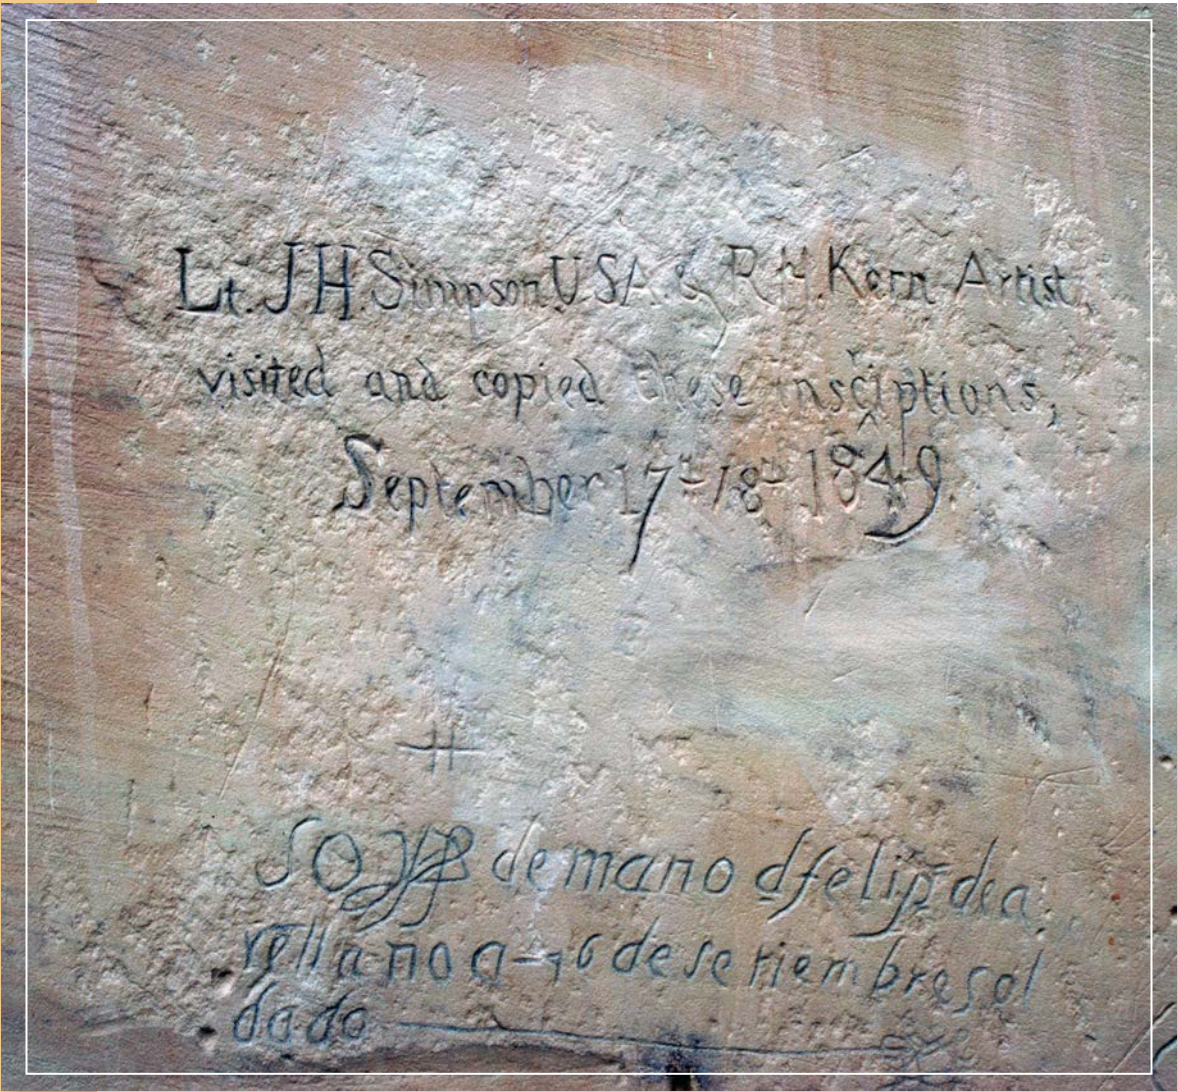 Lt. J H. Simpson U.S.A. & R.H. Kern Artist,
visited and copied these insciptions,
September 17th 18th 1849.
SOY de mano d felip de a
rellano a 16 de setiembre sol
dado